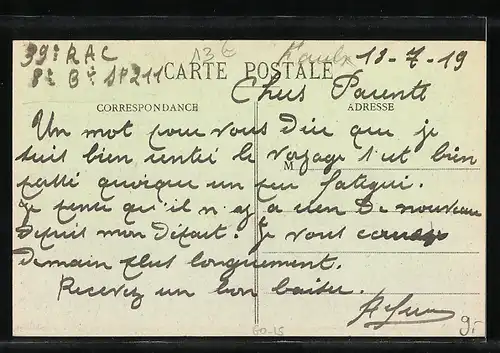 39e RAC
8e Bie SP211
13 E
18-7-19
CARTE POSTALE
Chers Parents
CORRESPONDANCE ADRESSE
Un mot pour vous dire que je
suis bien rentré le voyage s'est bien
M
passé quoique un peu fatigué.
Je pense qu'il n'y a rien de nouveau
depuis mon départ. Je vous
demain plus longuement.
Recevez un bon baiser.
60-15
9.-